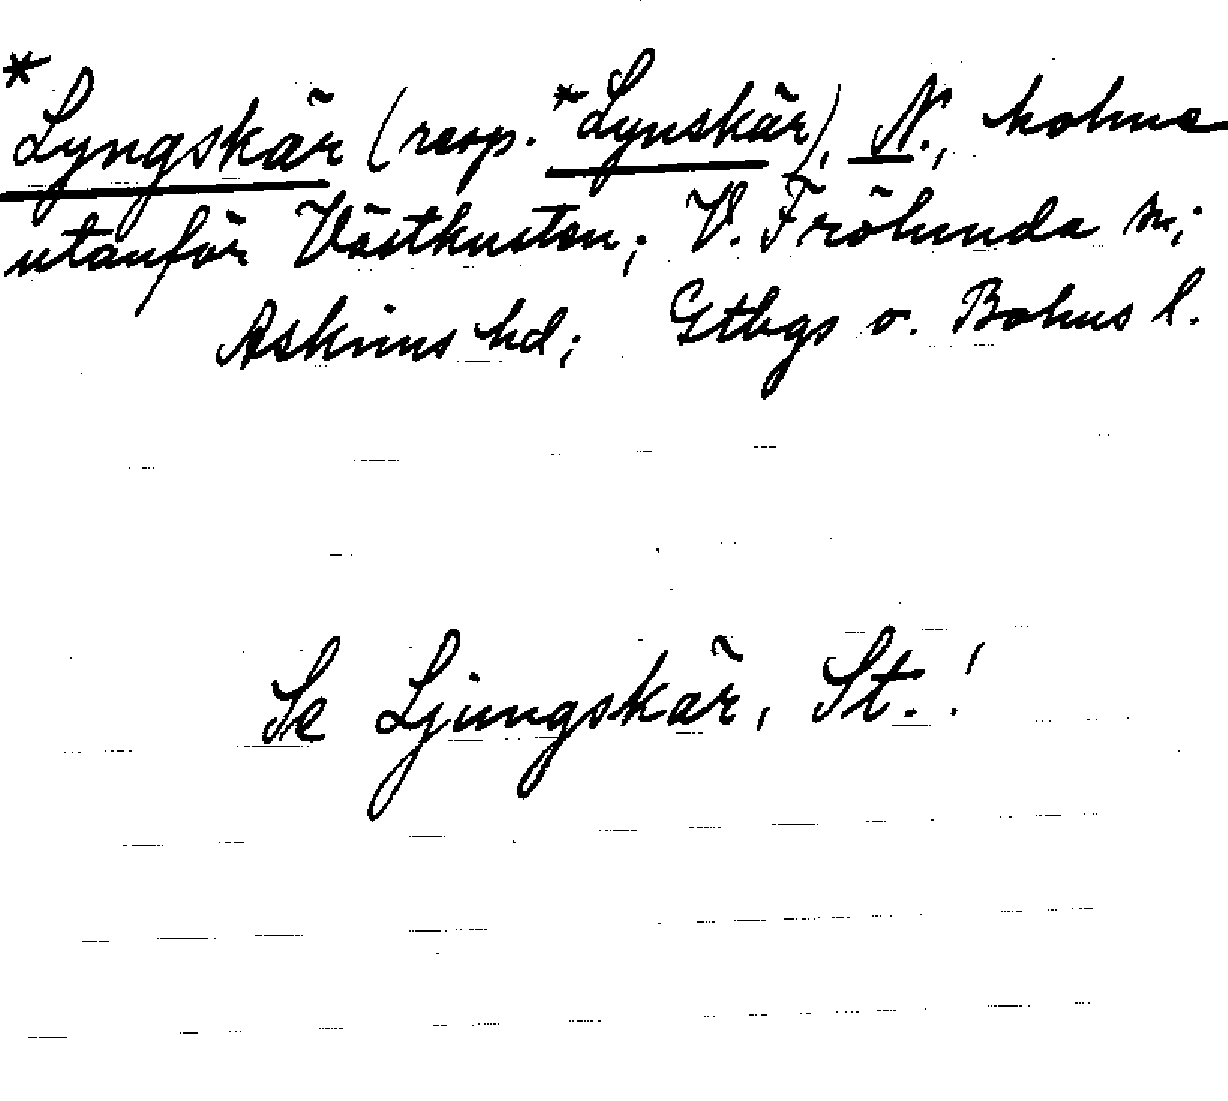 *Lyngskär (resp. *Lynskär), N., holme
utanför Västkusten; V. Frölunda sn;
Askims hd; Gtbgs o. Bohus l.
Se Ljungskär, St.!